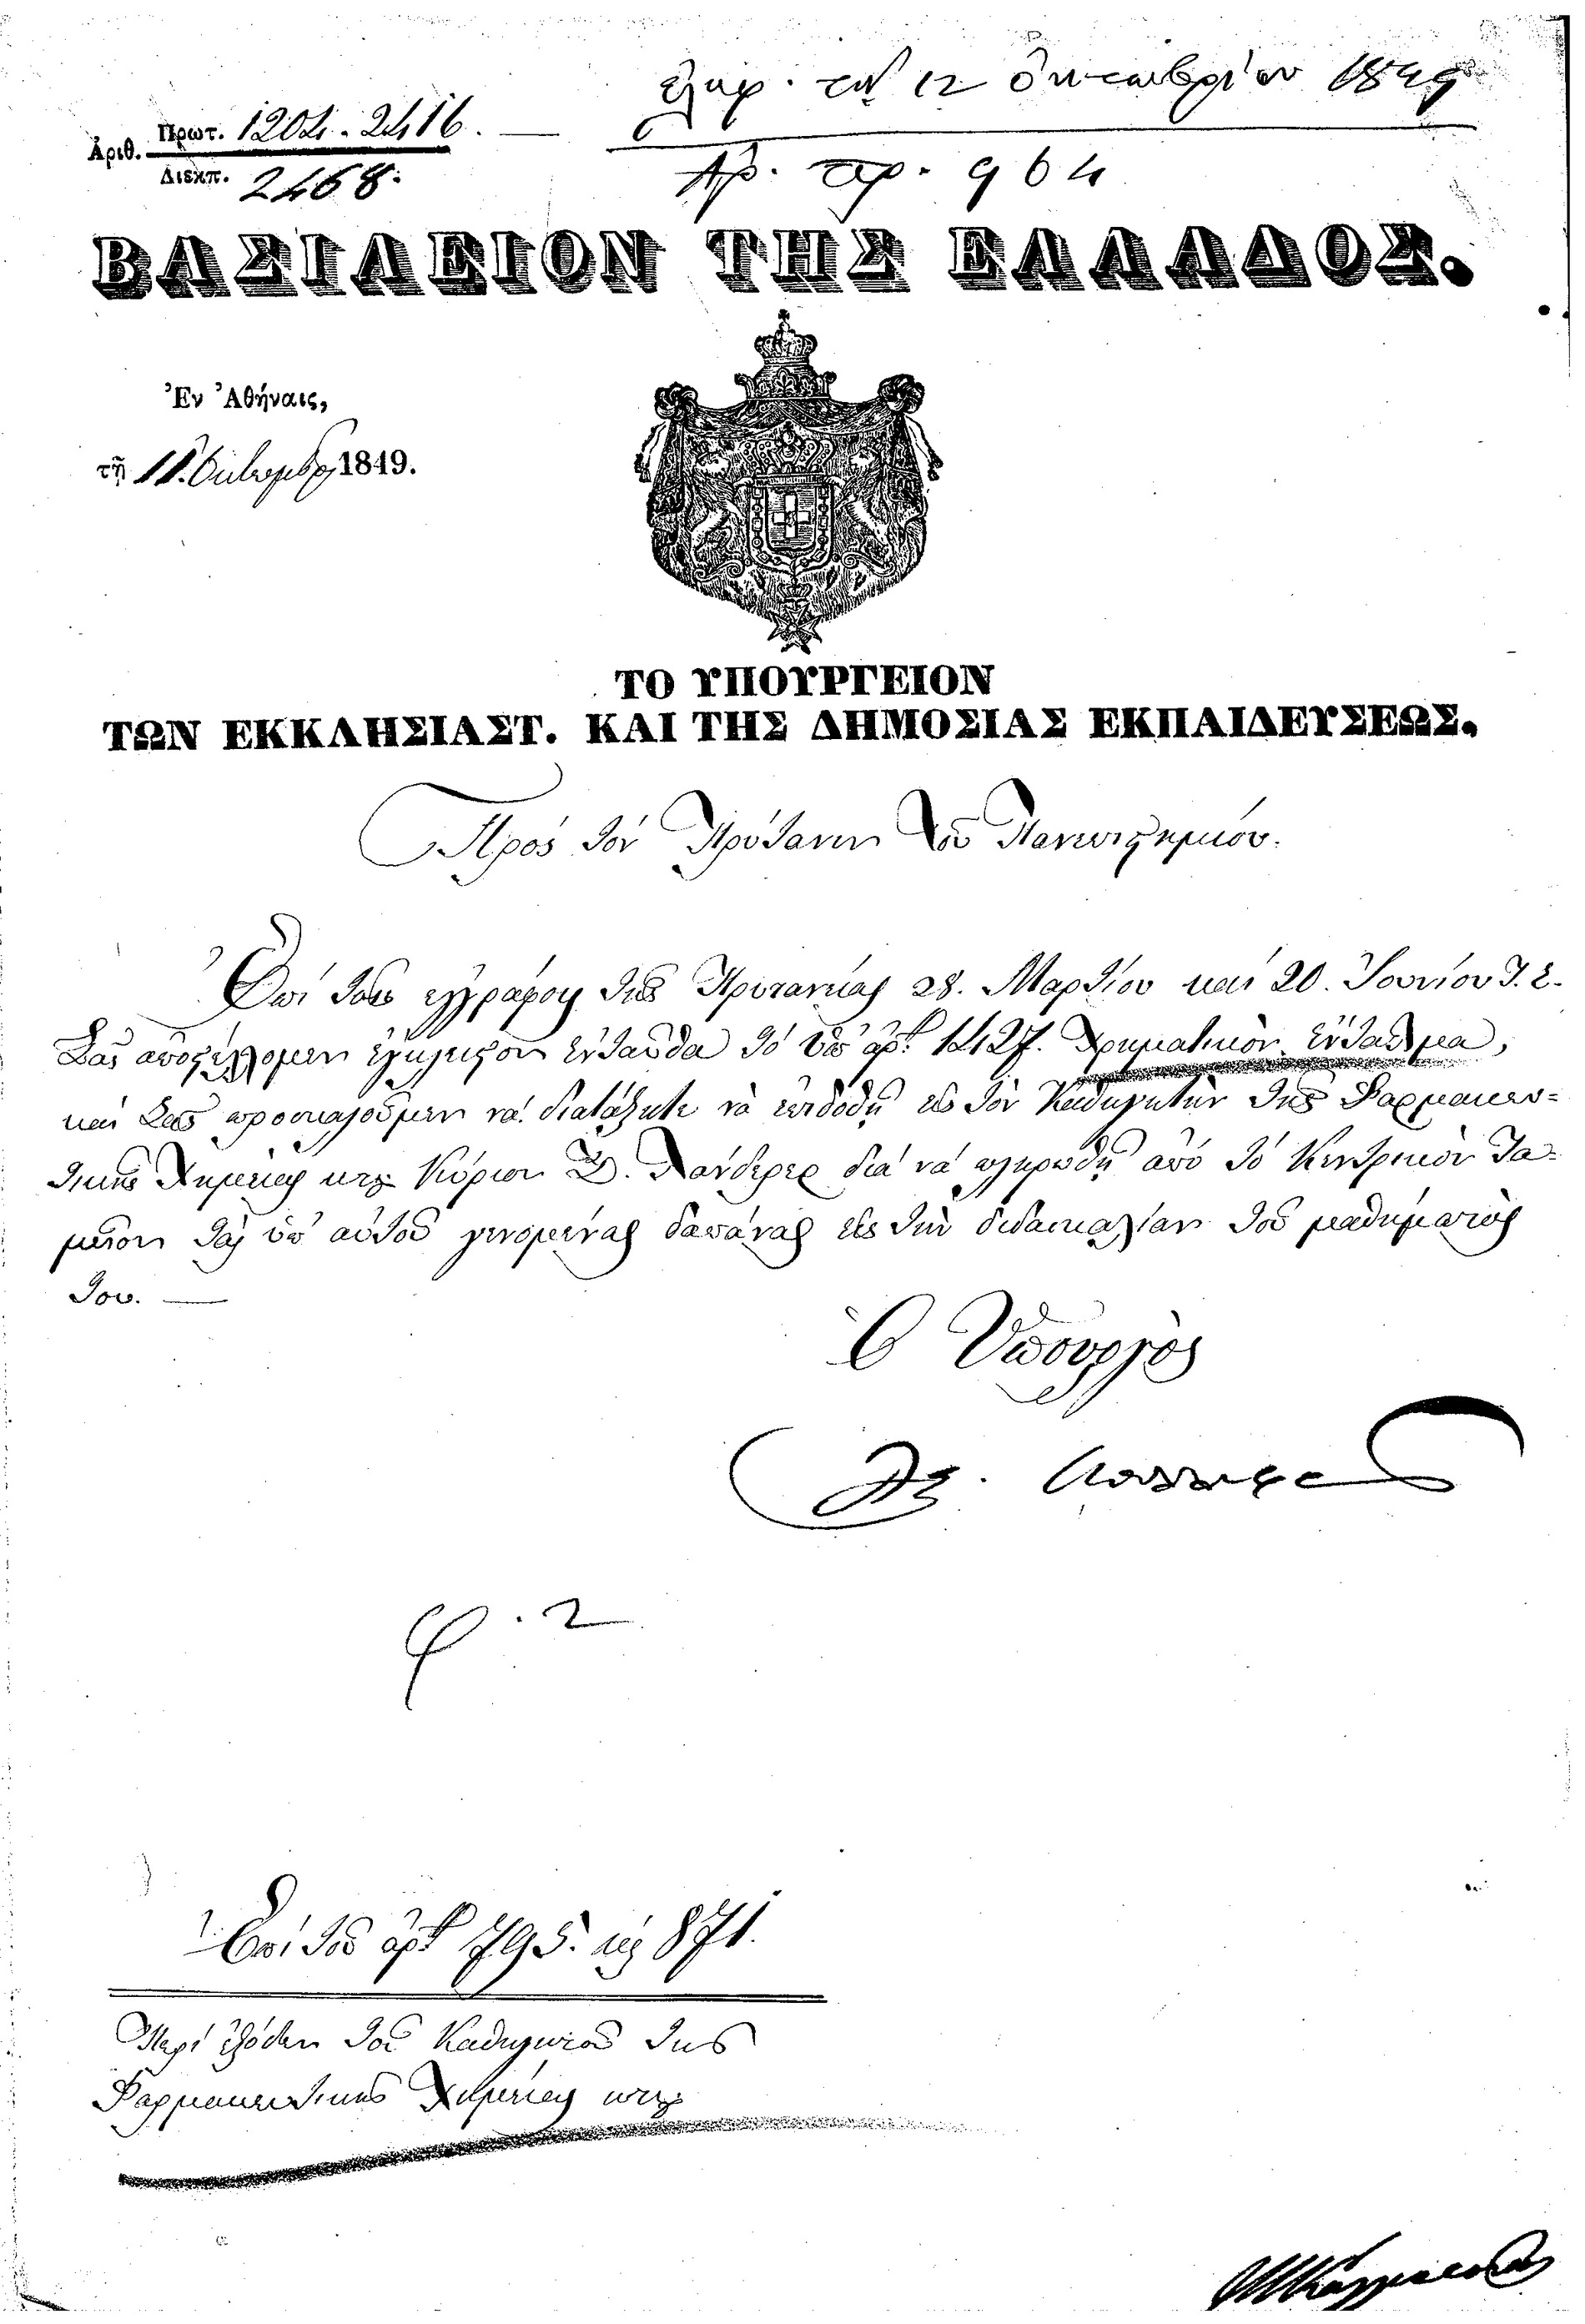 ἐλήφ. τῇ 12 Ὀκτωβρίου 1849
Ἀρ. πρ. 964
Ἀριθ. Πρωτ. 12021. 2416.
Διεκπ. 2468.
ΒΑΣΙΛΕΙΟΝ ΤΗΣ ΕΛΛΑΔΟΣ.
Ἐν Ἀθήναις,
τῇ 11. Ὀκτωμβρ. 1849.
ΤΟ ΥΠΟΥΡΓΕΙΟΝ
ΤΩΝ ΕΚΚΛΗΣΙΑΣΤ. ΚΑΙ ΤΗΣ ΔΗΜΟΣΙΑΣ ΕΚΠΑΙΔΕΥΣΕΩΣ.
Πρὸς τὸν Πρύτανιν τοῦ Πανεπιστημίου.
Ἐπὶ τῶν ἐγγράφων τῆς Πρυτανείας 28. Μαρτίου καὶ 20. Ἰουνίου τ. ἔ.
Σᾶς ἀποστέλλομεν ἐγκλείστως ἐνταῦθα τὸ ὑπ' ἀρ. 12127. Χρηματικὸν ἔνταλμα,
καὶ Σᾶς προσκαλοῦμεν νὰ διατάξητε νὰ ἐπιδοθῇ εἰς τὸν Καθηγητὴν τῆς Φαρμακευ-
τικῆς Χημείας κτλ Κύριον Ξ. Λάνδερερ διὰ νὰ πληρωθῇ ἀπὸ τὸ Κεντρικὸν Τα-
μεῖον τὰς ὑπ' αὐτοῦ γενομένας δαπάνας εἰς τὴν διδασκαλίαν τοῦ μαθήματός
του. —
Ὁ Ὑπουργὸς
φ. 2
Ἐπὶ τοῦ ἀρ. 795. καὶ 871.
Περὶ ἐξόδων τοῦ Καθηγητοῦ τῆς
Φαρμακευτικῆς Χημείας κτλ